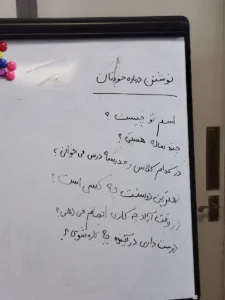 نوشتن درباره خودتان
اسم تو چیست ؟
چند ساله هستی ؟
در کدام کلاس و مدرسه درس می خوانی ؟
بهترین دوستت چه کسی است ؟
در وقت آزاد چه کاری انجام می دهی ؟
دوست داری در آینده چه کاره شوی ؟